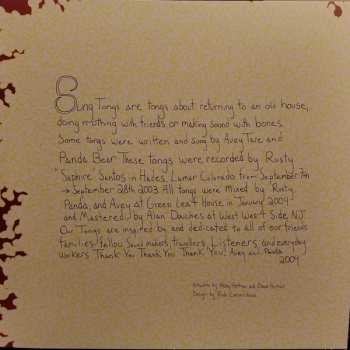 Sung Tongs are tongs about returning to an old house,
doing nothing with friends or making sound with bones.
Some tongs were written and sung by Avey Tare and
Panda Bear These tongs were recorded by Rusty
"Saphire" Santos in Hades, Lamar Colorado from September 7th
→ September 28th 2003 All tongs were Mixed by Rusty,
Panda, and Avey at Green Leaf House in January 2004
and Mastered by Alan Douches at West West Side N.J.
Our Tongs are inspired by and dedicated to all of our friends
families fellow Sound makers, travellers, Listeners and everyday
workers Thank You Thank You Thank You! Avey and Panda
2004
Artwork by Abby Portner and Dave Portner
Design by Rob Carmichael